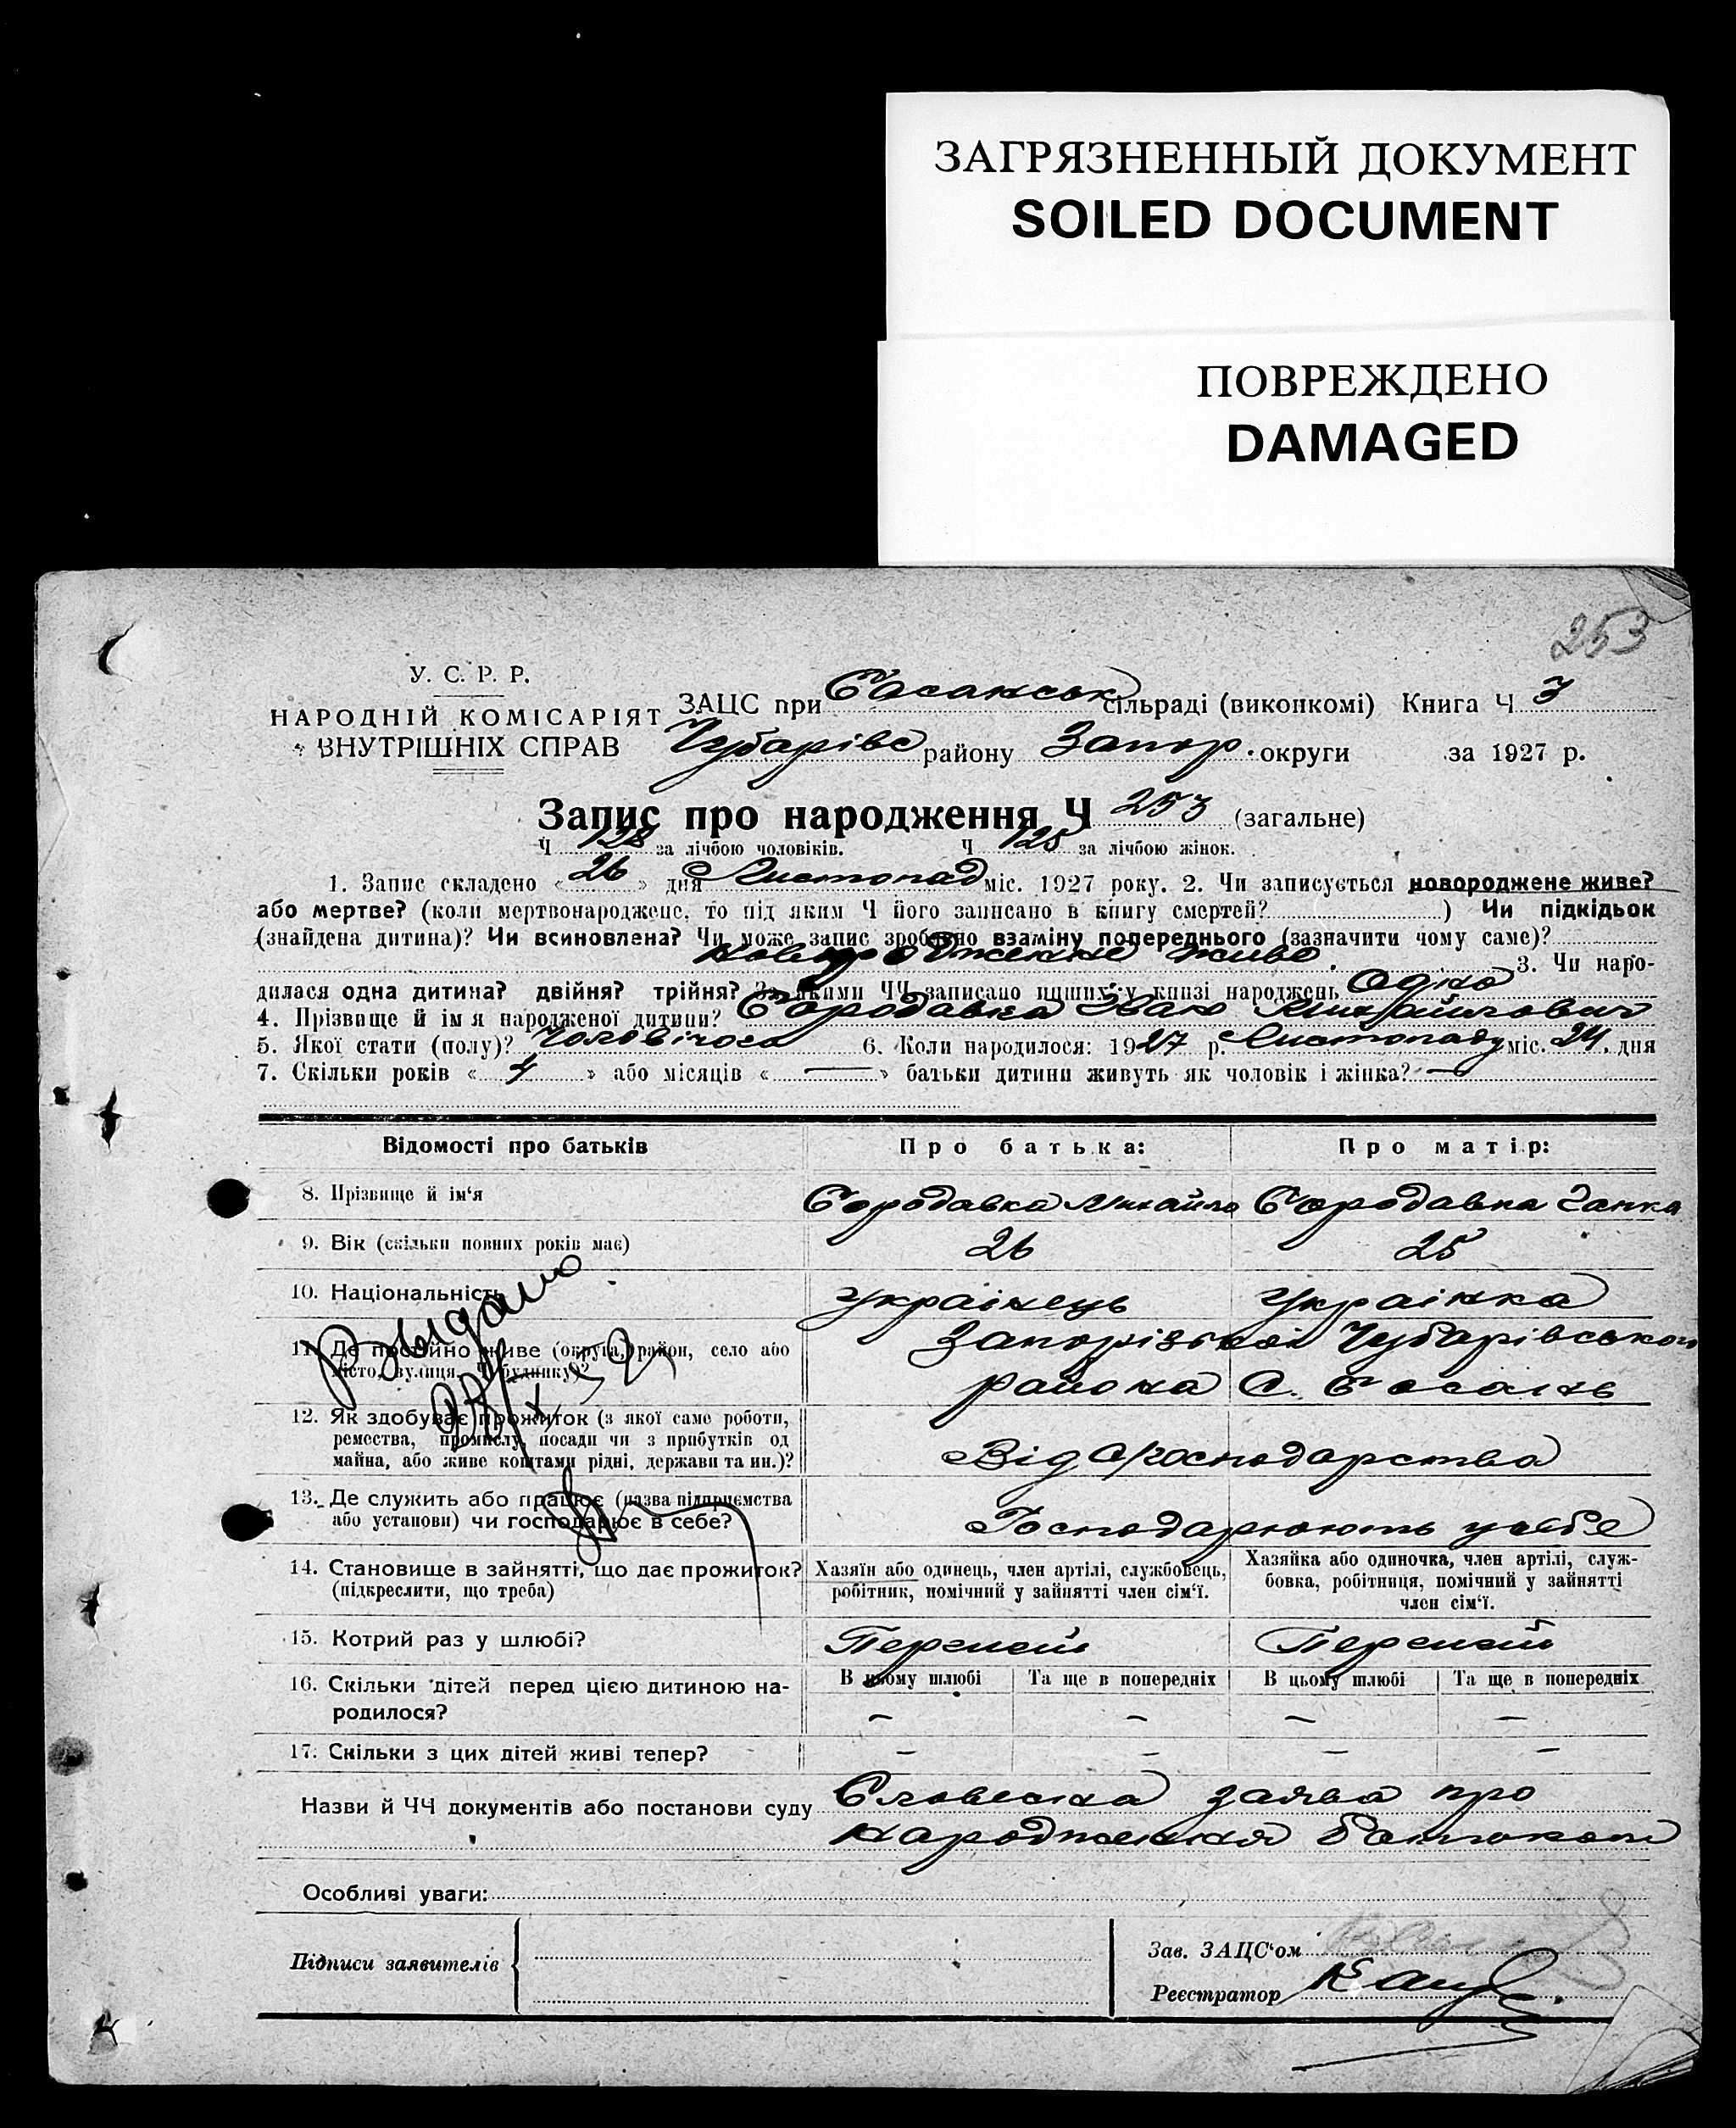 ЗАГРЯЗНЕННЫЙ ДОКУМЕНТ
SOILED DOCUMENT
ПОВРЕЖДЕНО
DAMAGED
253
У. С. Р. Р.
НАРОДНІЙ КОМІСАРІЯТ
ВНУТРІШНІХ СПРАВ
ЗАЦС при Босанськ сільраді (виконкомі) Книга Ч 3
Чубарівс району Запор. округи за 1927 р.
Запис про народження Ч 253 (загальне)
Ч 128 за лічбою чоловіків. Ч 125 за лічбою жінок.
1. Запис складено « 26 » дня Листопад міс. 1927 року. 2. Чи записується новороджене живе?
або мертве? (коли мертвонароджене, то під яким Ч його записано в книгу смертей? ) Чи підкідьок
(знайдена дитина)? Чи всиновлена? Чи може запис зроблено взаміну попереднього (зазначити чому саме)?
новородженне живе. 3. Чи наро-
дилася одна дитина? двійня? трійня? За якими ЧЧ записано инших у книзі народжень Одно
4. Прізвище й ім'я народженої дитини? Бородавка Іван Михайлович
5. Якої стати (полу)? Чоловічого 6. Коли народилося: 1927 р. Листопаду міс. 24. дня
7. Скільки років « 4 » або місяців « — » батьки дитини живуть як чоловік і жінка? —
Відомості про батьків Про батька: Про матір:
8. Прізвище й ім'я Бородавка Михайло Бородавка Ганна
9. Вік (скільки повних років має) 26 25
10. Національність українець українка
11. Де постійно живе (округа, район, село або
місто, вулиця, Ч будинку)? Запорізької Чубарівського
района С. Босань
Видано
12. Як здобуває прожиток (з якої саме роботи,
ремества, промислу, посади чи з прибутків од
майна, або живе коштами рідні, держави та ин.)? Від господарства
13. Де служить або працює (назва підприємства
або установи) чи господарює в себе? Господарюють у себе
14. Становище в зайнятті, що дає прожиток?
(підкреслити, що треба)
Хазяїн або одинець, член артілі, службовець,
робітник, помічний у зайнятті член сім'ї.
Хазяйка або одиночка, член артілі, служ-
бовка, робітниця, помічний у зайнятті
член сім'ї.
15. Котрий раз у шлюбі? Перший Перший
16. Скільки дітей перед цією дитиною на-
родилося?
В цьому шлюбі Та ще в попередніх В цьому шлюбі Та ще в попередніх
— — — —
17. Скільки з цих дітей живі тепер? — — — —
Назви й ЧЧ документів або постанови суду Словесна заява про
народження батьком
Особливі уваги:
Підписи заявителів
Зав. ЗАЦС'ом
Реєстратор